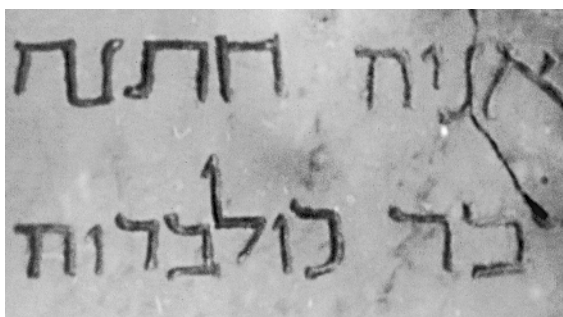 אניה חתנה
בר כולברות